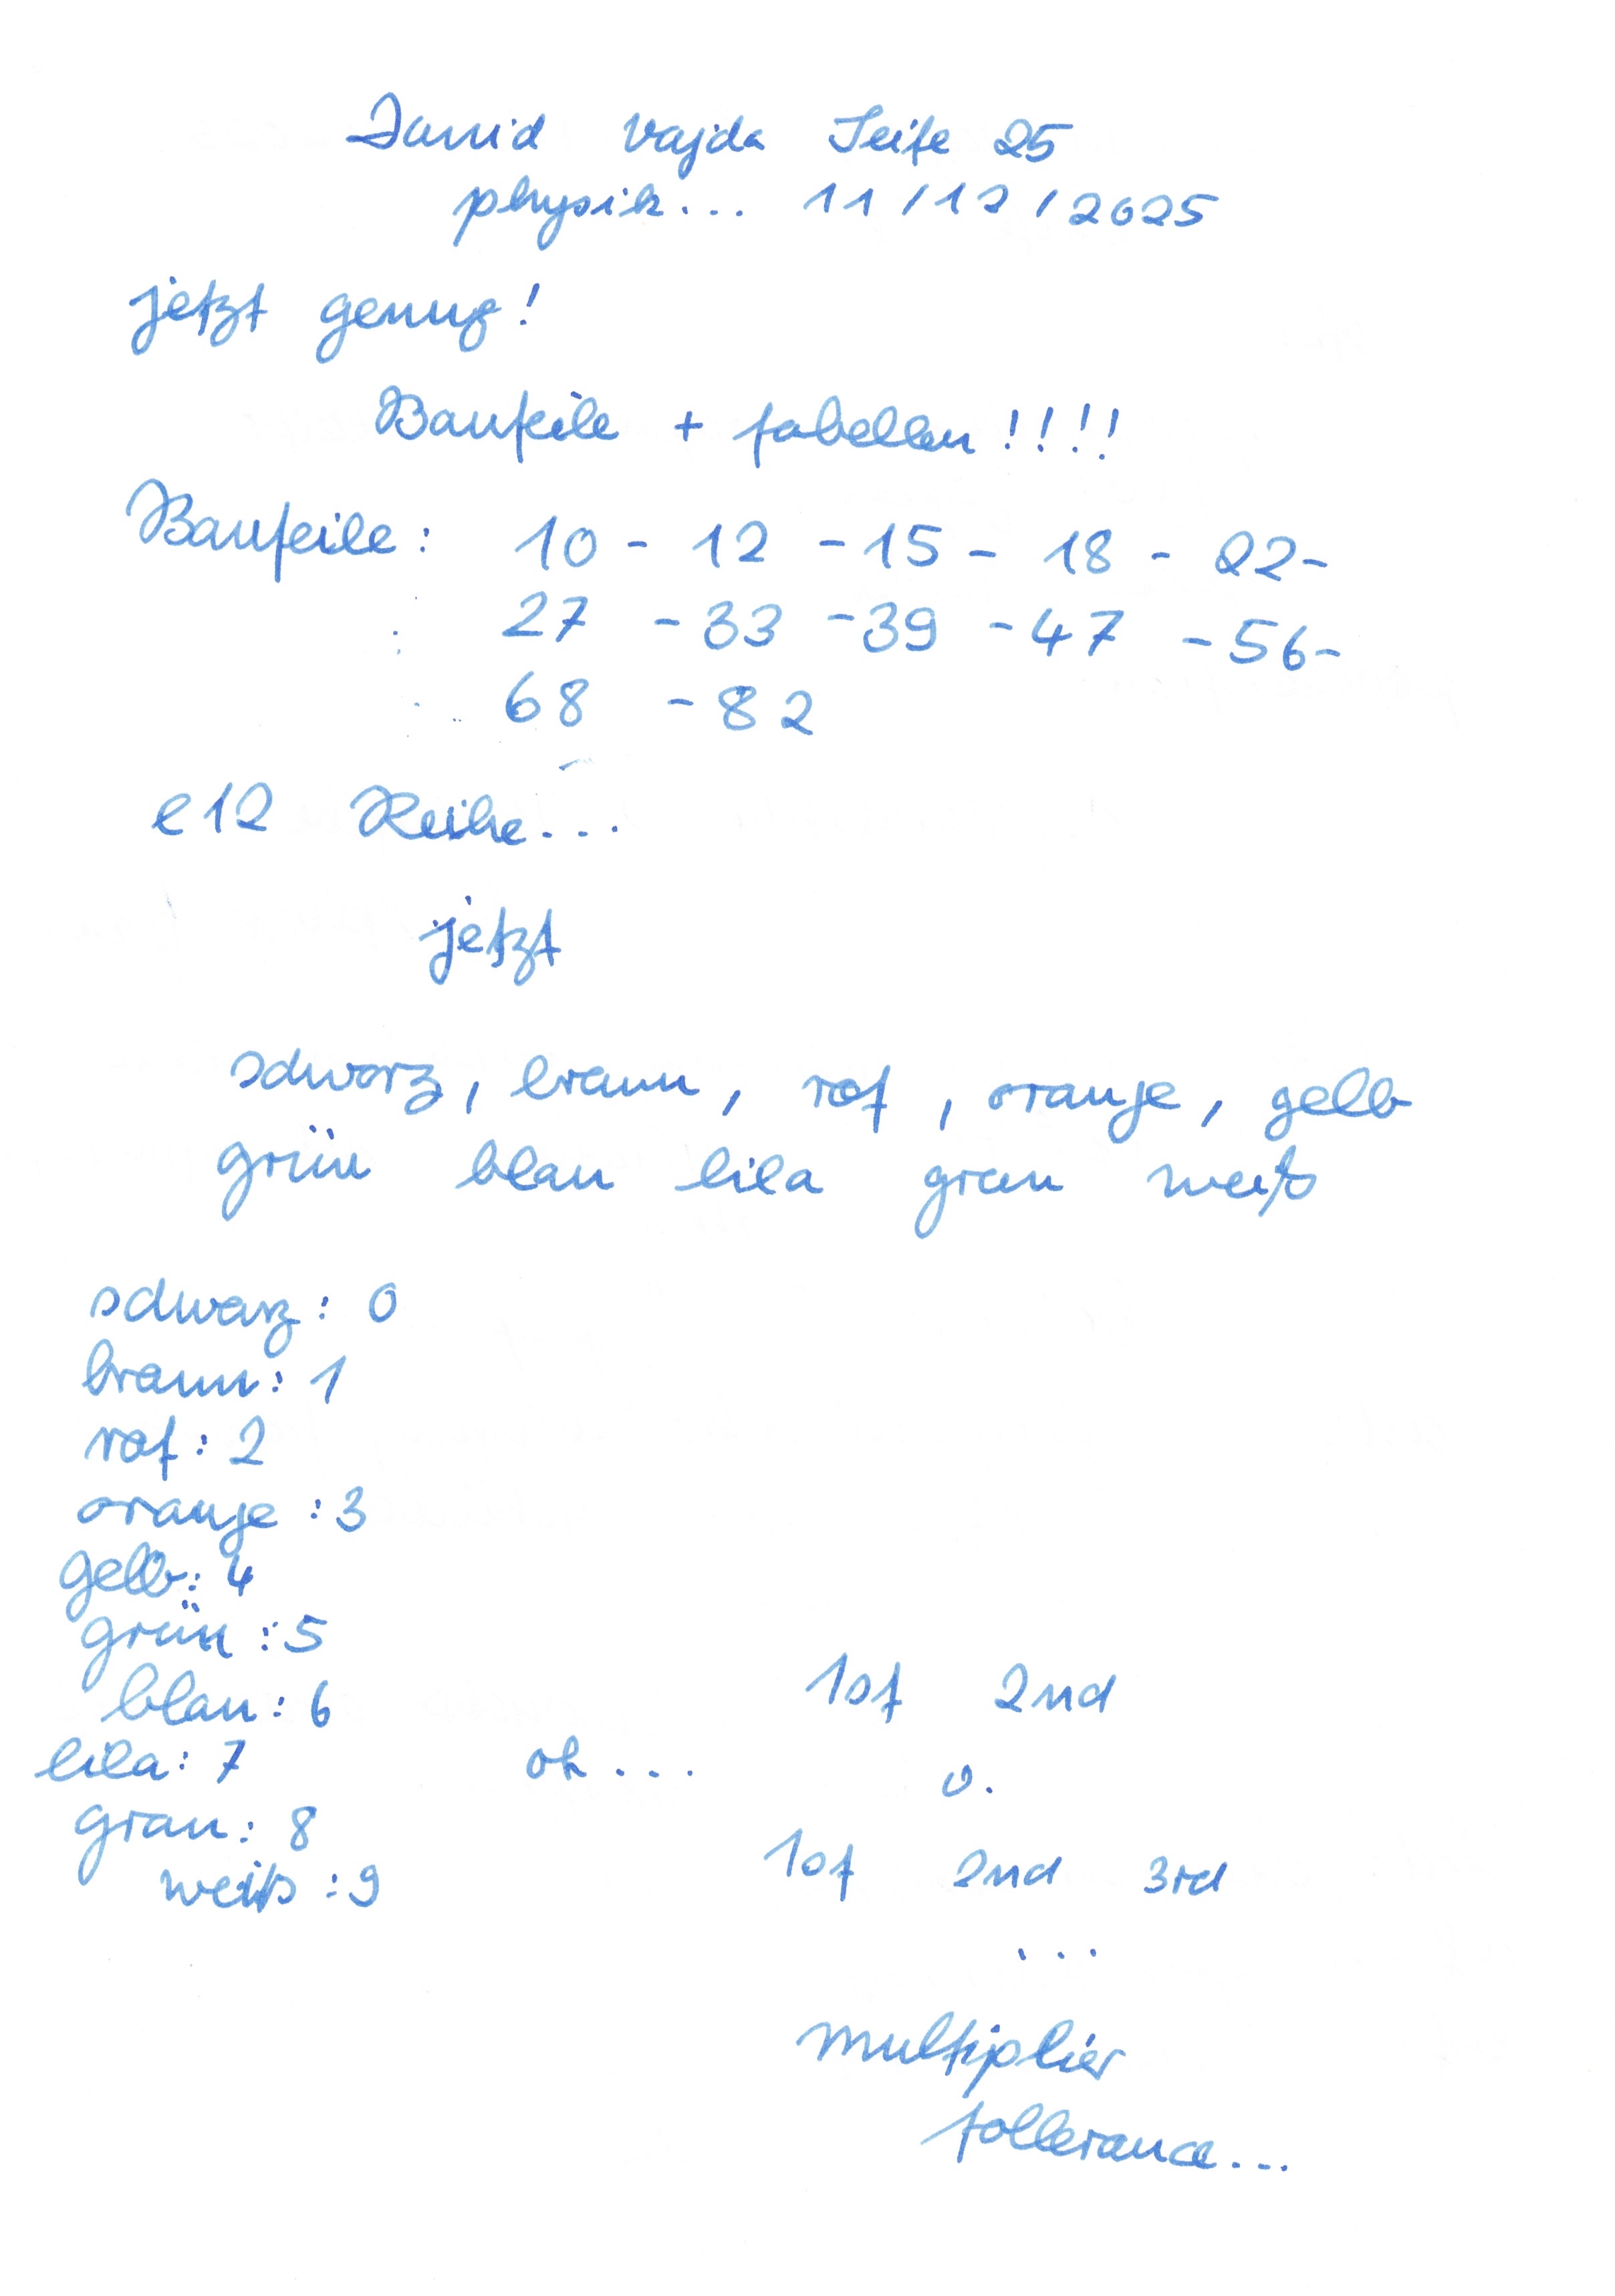 David Vajda Seite 25
physik... 11/12/2025
jetzt genug!
Bauteile + tabellen!!!!
Bauteile: 10 - 12 - 15 - 18 - 22-
27 - 33 - 39 - 47 - 56-
68 - 82
e12 Reihe...
jetzt
schwarz, braun, rot, orange, gelb
grün blau lila grau weiß
schwarz: 0
braun: 1
rot: 2
orange: 3
gelb: 4
grün: 5
blau: 6
lila: 7
grau: 8
weiß: 9
ok...
1st 2nd
o.
1st 2nd 3rd
...
multiplier
tollerance...